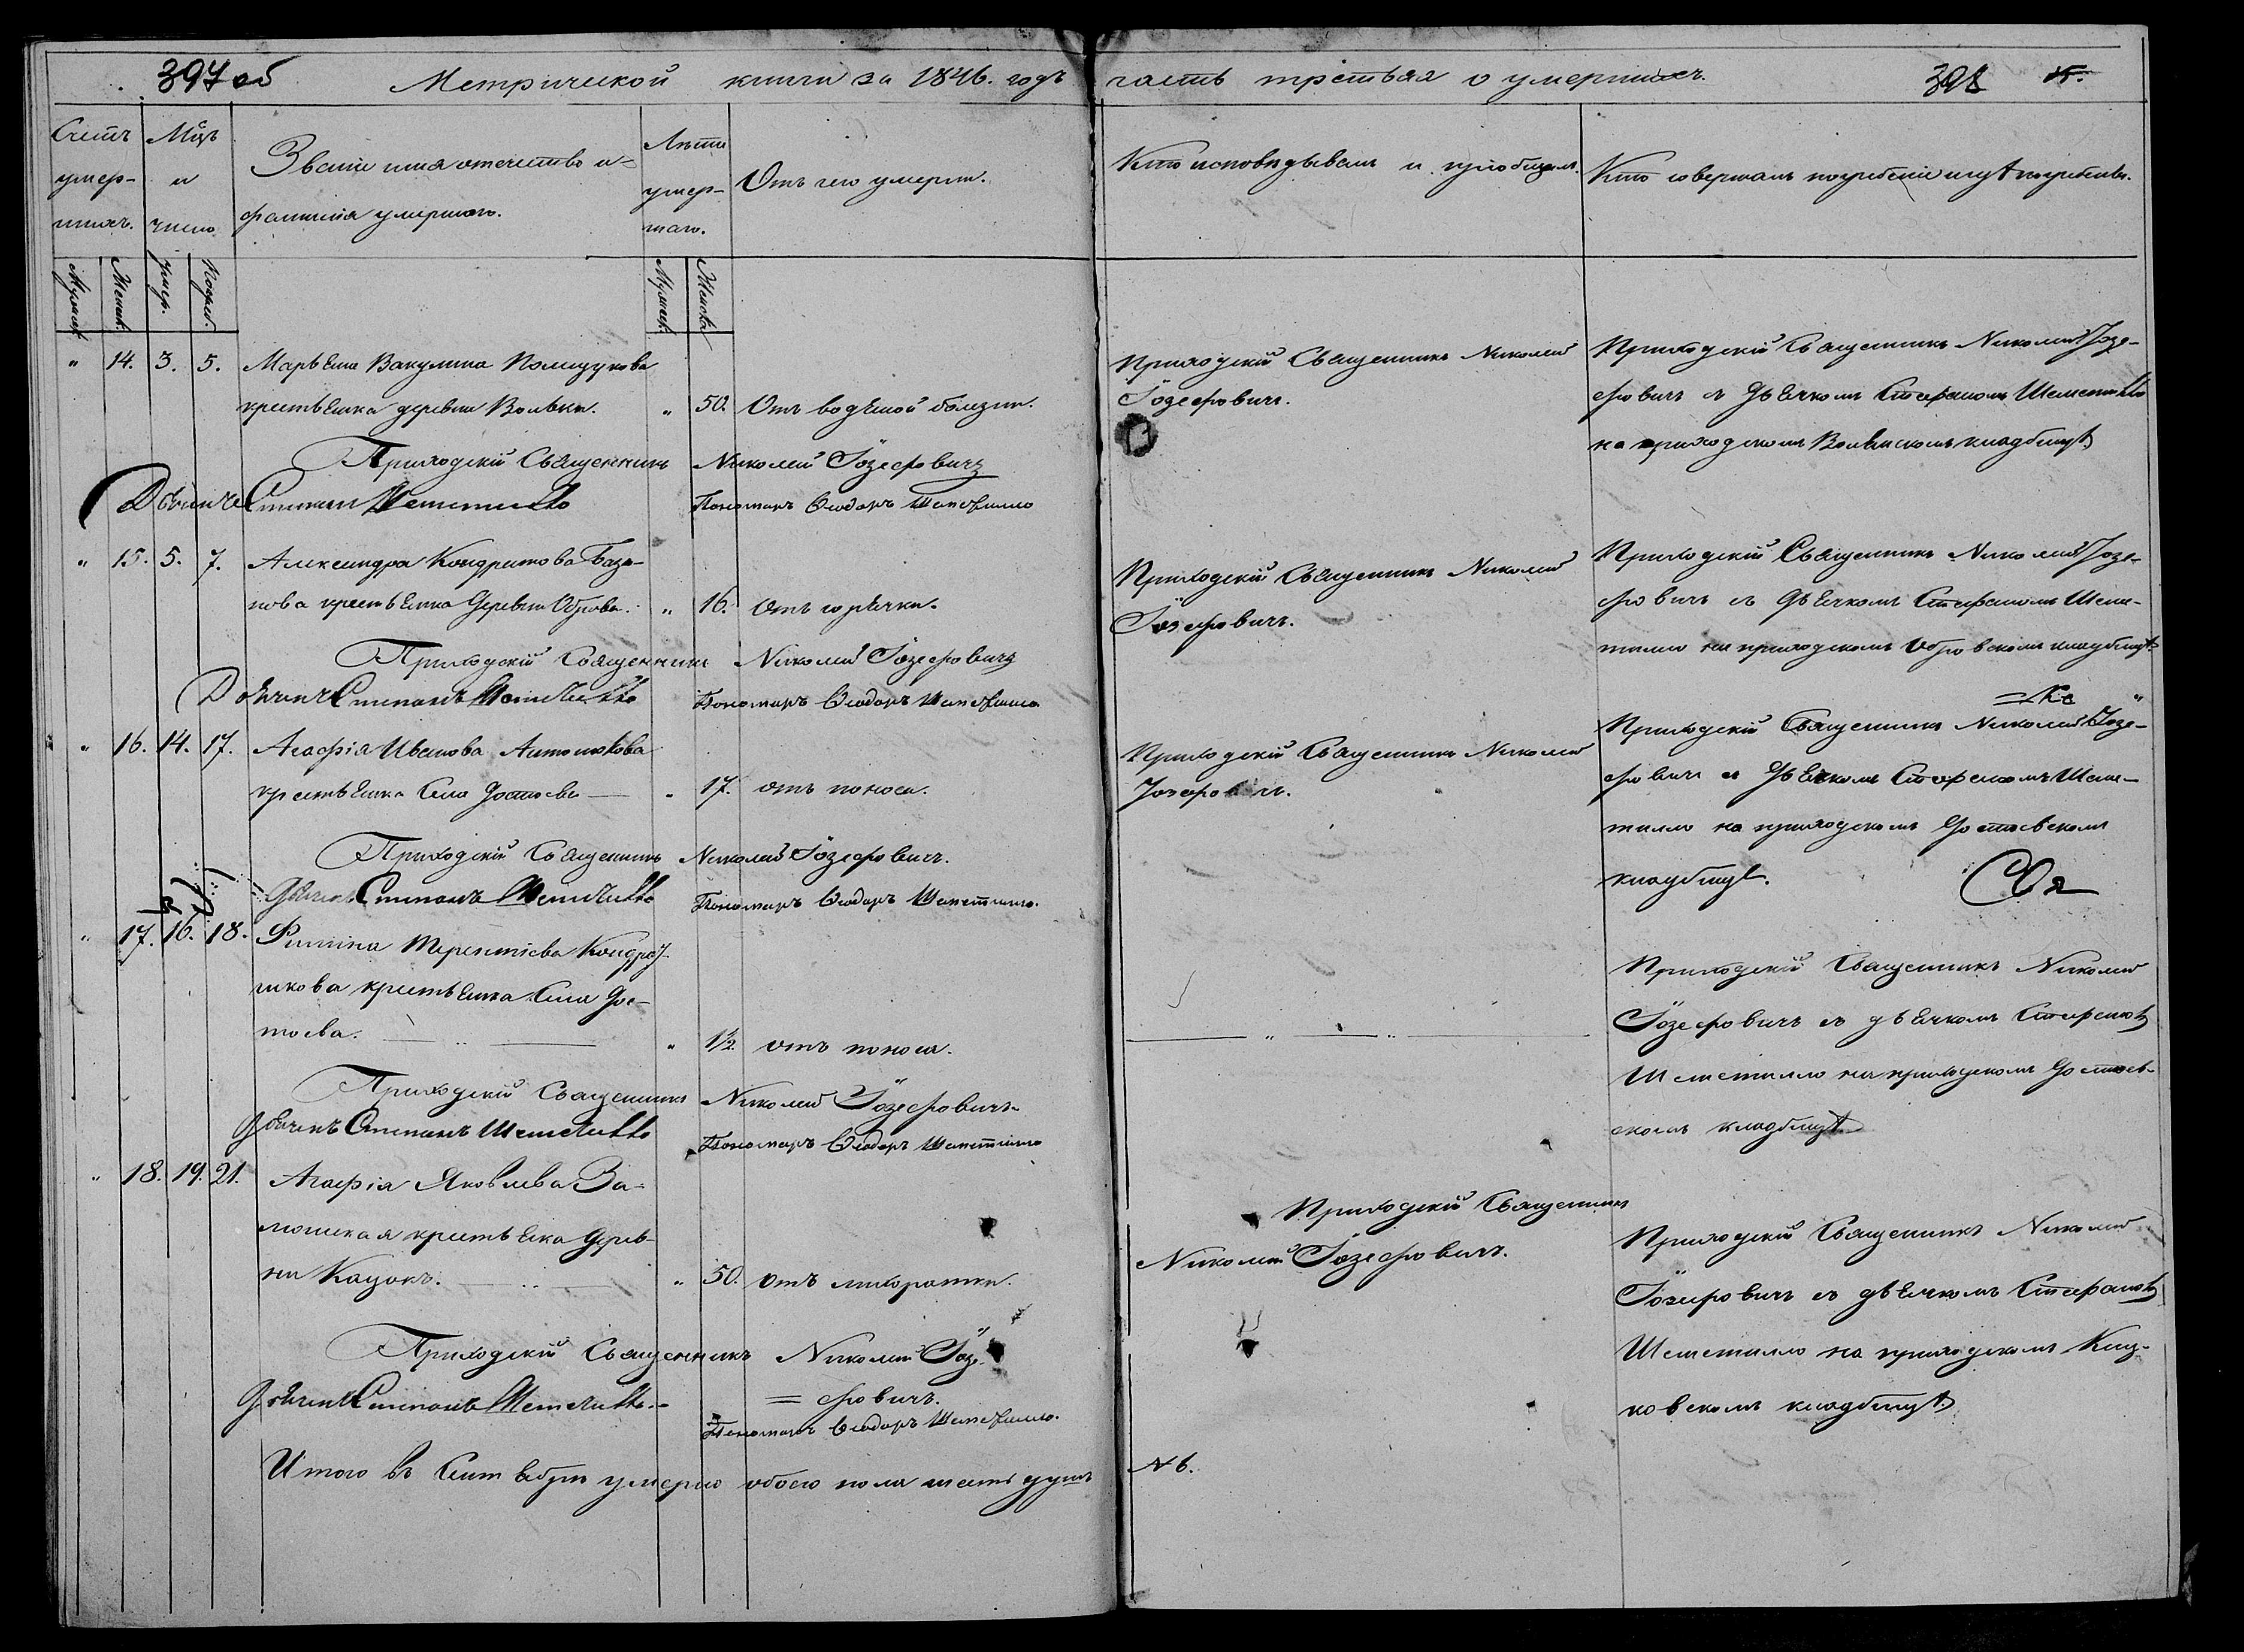 397 об
Метрической книги за 1846. годъ часть третья о умершихъ.
398
Счетъ умер-шихъ.
Мцъ и число
Званіе имя отечество и
фамилія умершаго.
Лѣта умер-шаго.
Отъ чего умерли.
Кто исповѣдывалъ и пріобщалъ.
Кто совершалъ погребеніе и гдѣ погребены.
Мужеск.
Женск.
умер.
Погреб.
Мужеск.
Женска
" 14. 3. 5. Марьяна Вакулина Полщукова
крестьянка деревни Вольки. " 50. Отъ водяной болезни.
Приходскій Священникъ Николай
Іозефовичъ.
Приходскій Священникъ Николай Іозе-
фовичъ съ дьячкомъ Стефаномъ Шеметилло
на приходскомъ Вольинскомъ кладбищѣ
Приходскій Священникъ Николай Іозефовичъ
Дьячекъ Степанъ Шеметилло
Пономарь Ѳеодоръ Шеметилло
" 15. 5. 7. Александра Кондратова База-
нова крестьянка Деревни Оброва. " 16. отъ горячки.
Приходскій Священникъ Николай
Іозефовичъ.
Приходскій Священникъ Николай Іозе-
фовичъ съ дьячкомъ Стефаномъ Шеме-
тилло на приходскомъ Обровскомъ кладбищѣ
Приходскій Священникъ Николай Іозефовичъ
Дьячекъ Степанъ Шеметилло
Пономарь Ѳеодоръ Шеметилло
" 16. 14. 17. Агафія Иванова Антонюкова
крестьянка Села Достоева " 17. отъ поноса.
Приходскій Священникъ Николай
Іозефовичъ.
Приходскій Священникъ Николай Іозе-
фовичъ съ дьячкомъ Стефаномъ Шеме-
тилло на приходскомъ Достоевскомъ
кладбищѣ.
Приходскій Священникъ Николай Іозефовичъ.
Дьячекъ Степанъ Шеметилло
Пономарь Ѳеодоръ Шеметилло.
" 17. 16. 18. Терентіева Кондра-
чикова крестьянка Села Дос-
тоева. " 1½. отъ поноса.
Приходскій Священникъ Николай
Іозефовичъ съ дьячкомъ Стефаномъ
Шеметилло на приходскомъ Достоев-
скомъ кладбищѣ
Приходскій Священникъ Николай Іозефовичъ.
Дьячекъ Степанъ Шеметилло
Пономарь Ѳеодоръ Шеметилло
" 18. 19. 21. Агафія Яковлева За-
мошская крестьянка Дерев-
ни Кацокъ. " 50. отъ лихорадки.
Приходскій Священникъ
Николай Іозефовичъ.
Приходскій Священникъ Николай
Іозефовичъ съ дьячкомъ Стефаномъ
Шеметилло на приходскомъ Кац-
ковскомъ кладбищѣ
Приходскій Священникъ Николай Іозе-
= фовичъ.
Дьячекъ Степанъ Шеметилло.
Пономарь Ѳеодоръ Шеметилло.
Итого въ Сентябрѣ умерло обоего пола шесть душъ
№ 6.